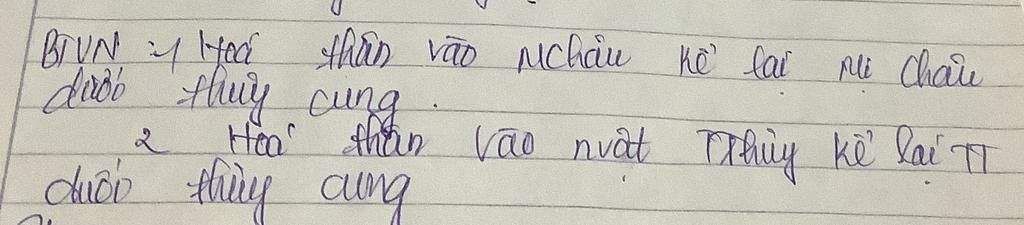 BTVN : 1 Hoá thân vào MChâu kể lại Mị Châu
dưới thuỷ cung.
2 Hoá thân vào nvật TThủy kể lại TT
dưới thủy cung